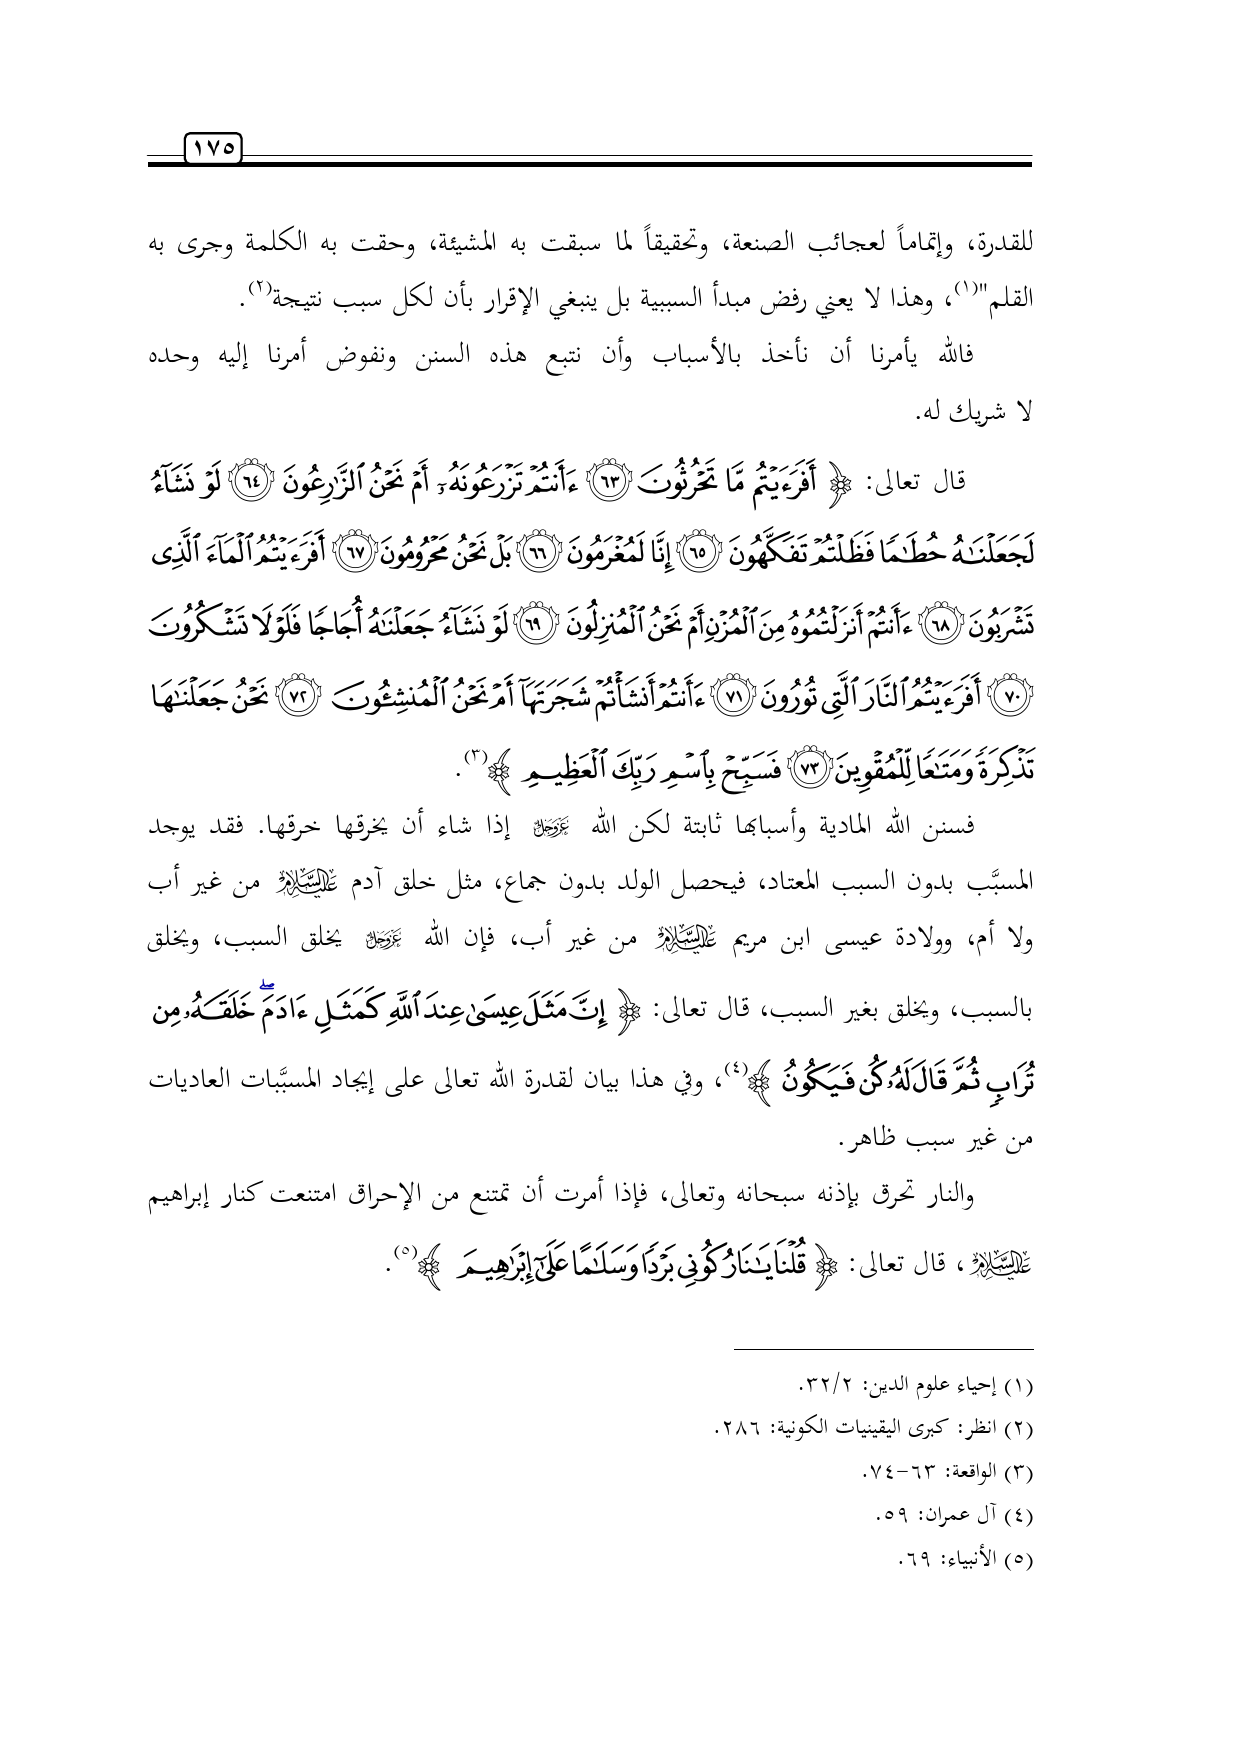 ١٧٥
للقدرة، وإتماماً لعجائب الصنعة، وتحقيقاً لما سبقت به المشيئة، وحقت به الكلمة وجرى به
القلم"(١)، وهذا لا يعني رفض مبدأ السببية بل ينبغي الإقرار بأن لكل سبب نتيجة(٢).
فالله يأمرنا أن نأخذ بالأسباب وأن نتبع هذه السنن ونفوض أمرنا إليه وحده
لا شريك له.
قال تعالى: ﴿ أَفَرَءَيْتُم مَّا تَحْرُثُونَ ٦٣ ءَأَنتُمْ تَزْرَعُونَهُۥٓ أَمْ نَحْنُ ٱلزَّٰرِعُونَ ٦٤ لَوْ نَشَآءُ
لَجَعَلْنَٰهُ حُطَٰمًا فَظَلْتُمْ تَفَكَّهُونَ ٦٥ إِنَّا لَمُغْرَمُونَ ٦٦ بَلْ نَحْنُ مَحْرُومُونَ ٦٧ أَفَرَءَيْتُمُ ٱلْمَآءَ ٱلَّذِى
تَشْرَبُونَ ٦٨ ءَأَنتُمْ أَنزَلْتُمُوهُ مِنَ ٱلْمُزْنِ أَمْ نَحْنُ ٱلْمُنزِلُونَ ٦٩ لَوْ نَشَآءُ جَعَلْنَٰهُ أُجَاجًا فَلَوْلَا تَشْكُرُونَ
٧٠ أَفَرَءَيْتُمُ ٱلنَّارَ ٱلَّتِى تُورُونَ ٧١ ءَأَنتُمْ أَنشَأْتُمْ شَجَرَتَهَآ أَمْ نَحْنُ ٱلْمُنشِـُٔونَ ٧٢ نَحْنُ جَعَلْنَٰهَا
تَذْكِرَةً وَمَتَٰعًا لِّلْمُقْوِينَ ٧٣ فَسَبِّحْ بِٱسْمِ رَبِّكَ ٱلْعَظِيمِ ﴾(٣).
فسنن الله المادية وأسبابها ثابتة لكن الله عز وجل إذا شاء أن يخرقها خرقها. فقد يوجد
المسبَّب بدون السبب المعتاد، فيحصل الولد بدون جماع، مثل خلق آدم عليه السلام من غير أب
ولا أم، وولادة عيسى ابن مريم عليه السلام من غير أب، فإن الله عز وجل يخلق السبب، ويخلق
بالسبب، ويخلق بغير السبب، قال تعالى: ﴿ إِنَّ مَثَلَ عِيسَىٰ عِندَ ٱللَّهِ كَمَثَلِ ءَادَمَۖ خَلَقَهُۥ مِن
تُرَابٍ ثُمَّ قَالَ لَهُۥ كُن فَيَكُونُ ﴾(٤)، وفي هذا بيان لقدرة الله تعالى على إيجاد المسبَّبات العاديات
من غير سبب ظاهر.
والنار تحرق بإذنه سبحانه وتعالى، فإذا أمرت أن تمتنع من الإحراق امتنعت كنار إبراهيم
عليه السلام، قال تعالى: ﴿ قُلْنَا يَٰنَارُ كُونِى بَرْدًا وَسَلَٰمًا عَلَىٰٓ إِبْرَٰهِيمَ ﴾(٥).
(١) إحياء علوم الدين: ٣٢/٢.
(٢) انظر: كبرى اليقينيات الكونية: ٢٨٦.
(٣) الواقعة: ٦٣-٧٤.
(٤) آل عمران: ٥٩.
(٥) الأنبياء: ٦٩.